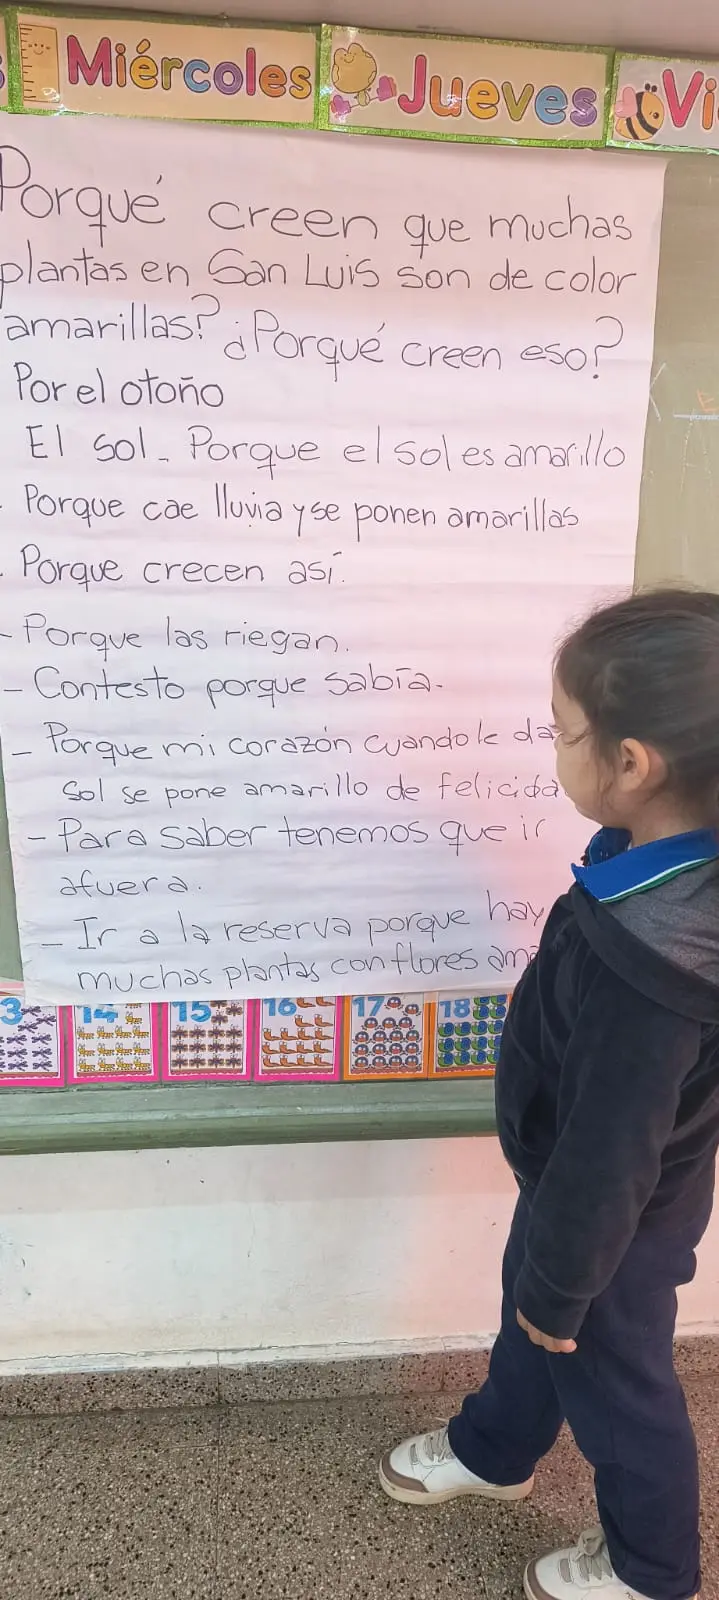 Miércoles Jueves Vi
Porqué creen que muchas
plantas en San Luis son de color
amarillas? ¿Porqué creen eso?
Por el otoño
El sol. Porque el sol es amarillo
Porque cae lluvia y se ponen amarillas
Porque crecen así.
- Porque las riegan.
- Contesto porque sabía.
- Porque mi corazón cuando le da
Sol se pone amarillo de felicida
- Para saber tenemos que ir
afuera.
- Ir a la reserva porque hay
muchas plantas con flores ama
3 14 15 16 17 18